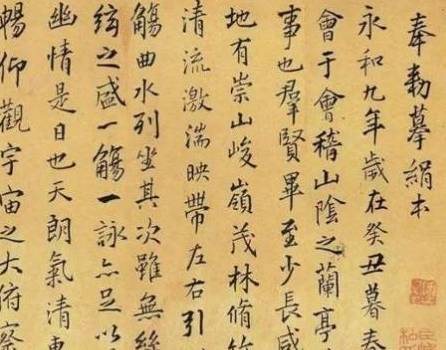 奉勅摹絹本
永和九年歲在癸丑暮春
會于會稽山陰之蘭亭
事也羣賢畢至少長咸
地有崇山峻嶺茂林脩竹
清流激湍映帶左右引
觴曲水列坐其次雖無絲
絃之盛一觴一詠亦足以
幽情是日也天朗氣清惠
暢仰觀宇宙之大俯察